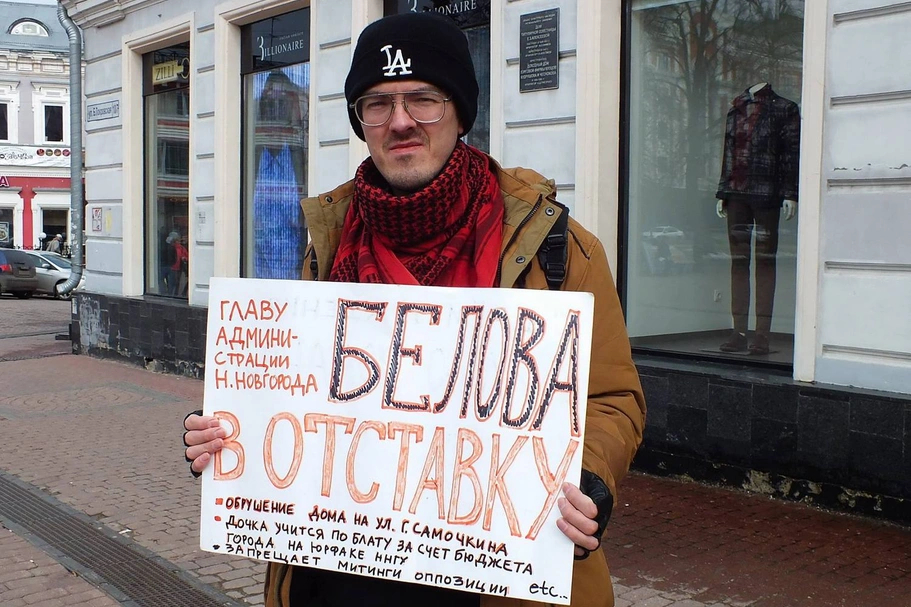 BILLIONAIRE
BILLIONAIRE
ZILLI
LA
ГЛАВУ
АДМИНИ-
СТРАЦИИ
Н.НОВГОРОДА
БЕЛОВА
В ОТСТАВКУ
ОБРУШЕНИЕ ДОМА НА УЛ. Г. САМОЧКИНА
ДОЧКА УЧИТСЯ ПО БЛАТУ ЗА СЧЕТ БЮДЖЕТА
ГОРОДА НА ЮРФАКЕ ННГУ
ЗАПРЕЩАЕТ МИТИНГИ ОППОЗИЦИИ etc..